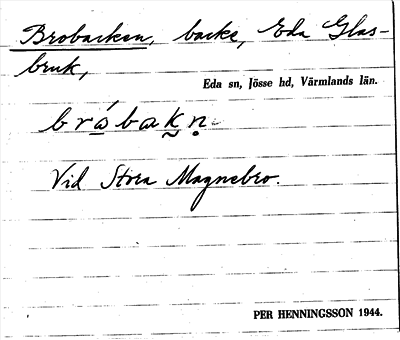 Brobacken, backe, Eda Glas-
bruk,
Eda sn, Jösse hd, Värmlands län.
bråbakn
Vid Stora Magnebro.
PER HENNINGSSON 1944.